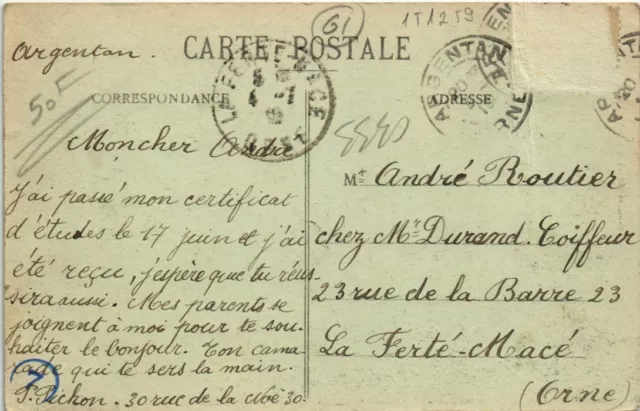 Argentan.
CARTE POSTALE
61
1T12T9
50F
CORRESPONDANCE
Moncher André
J'ai passé mon certificat
d'études le 17 juin et j'ai
été reçu, j'espère que tu réus
sira aussi. Mes parents se
joignent à moi pour te sou-
haiter le bonjour. Ton cama-
rage qui te sers la main.
P. Pichon. 30 rue de la Noë 30.
7
ADRESSE
Mr André Routier
chez Mr Durand. Coiffeur
23 rue de la Barre 23
La Ferté-Macé
(Orne)
ARGENTAN
ORNE
LA FERTE MACE